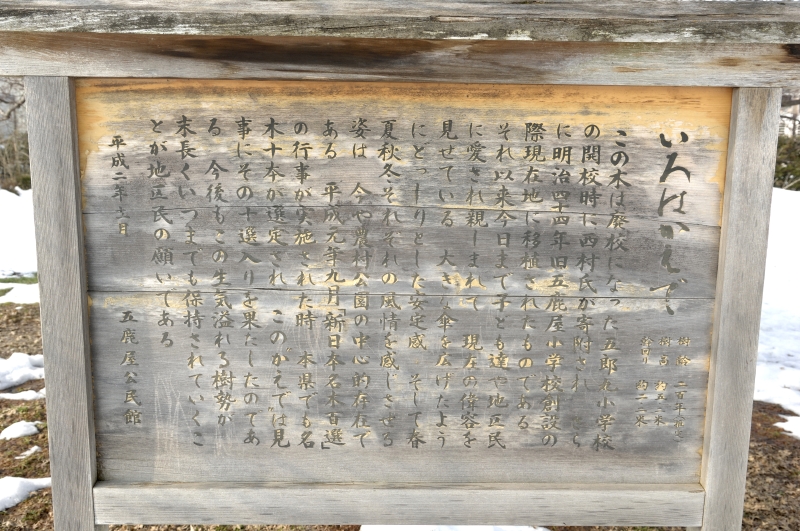 いろはかえで
樹齢 二百年
樹高 約五・二米
幹周り 約二・二米
この木は廃校になった五郎丸小学校
の開校時に西村氏が寄附され
に明治四四年旧五鹿屋小学校創設の
際現在地に移植されたものである
それ以来今日まで子ども達や地区民
に愛され親しまれて 現在の偉容を
見せている 大きな傘を広げたよう
にどっしりとした安定感 そして春
夏秋冬それぞれの風情を感じさせる
姿は 今や農村公園の中心的存在で
ある 平成元年九月「新日本名木百選」
の行事が実施された時 本県でも名
木十本が選定され このかえでは見
事にその十選入りを果たしたのであ
る 今後もこの生気溢れる樹勢が
末長くいつまでも保持されていくこ
とが地区民の願いである
平成二年 月
五鹿屋公民館